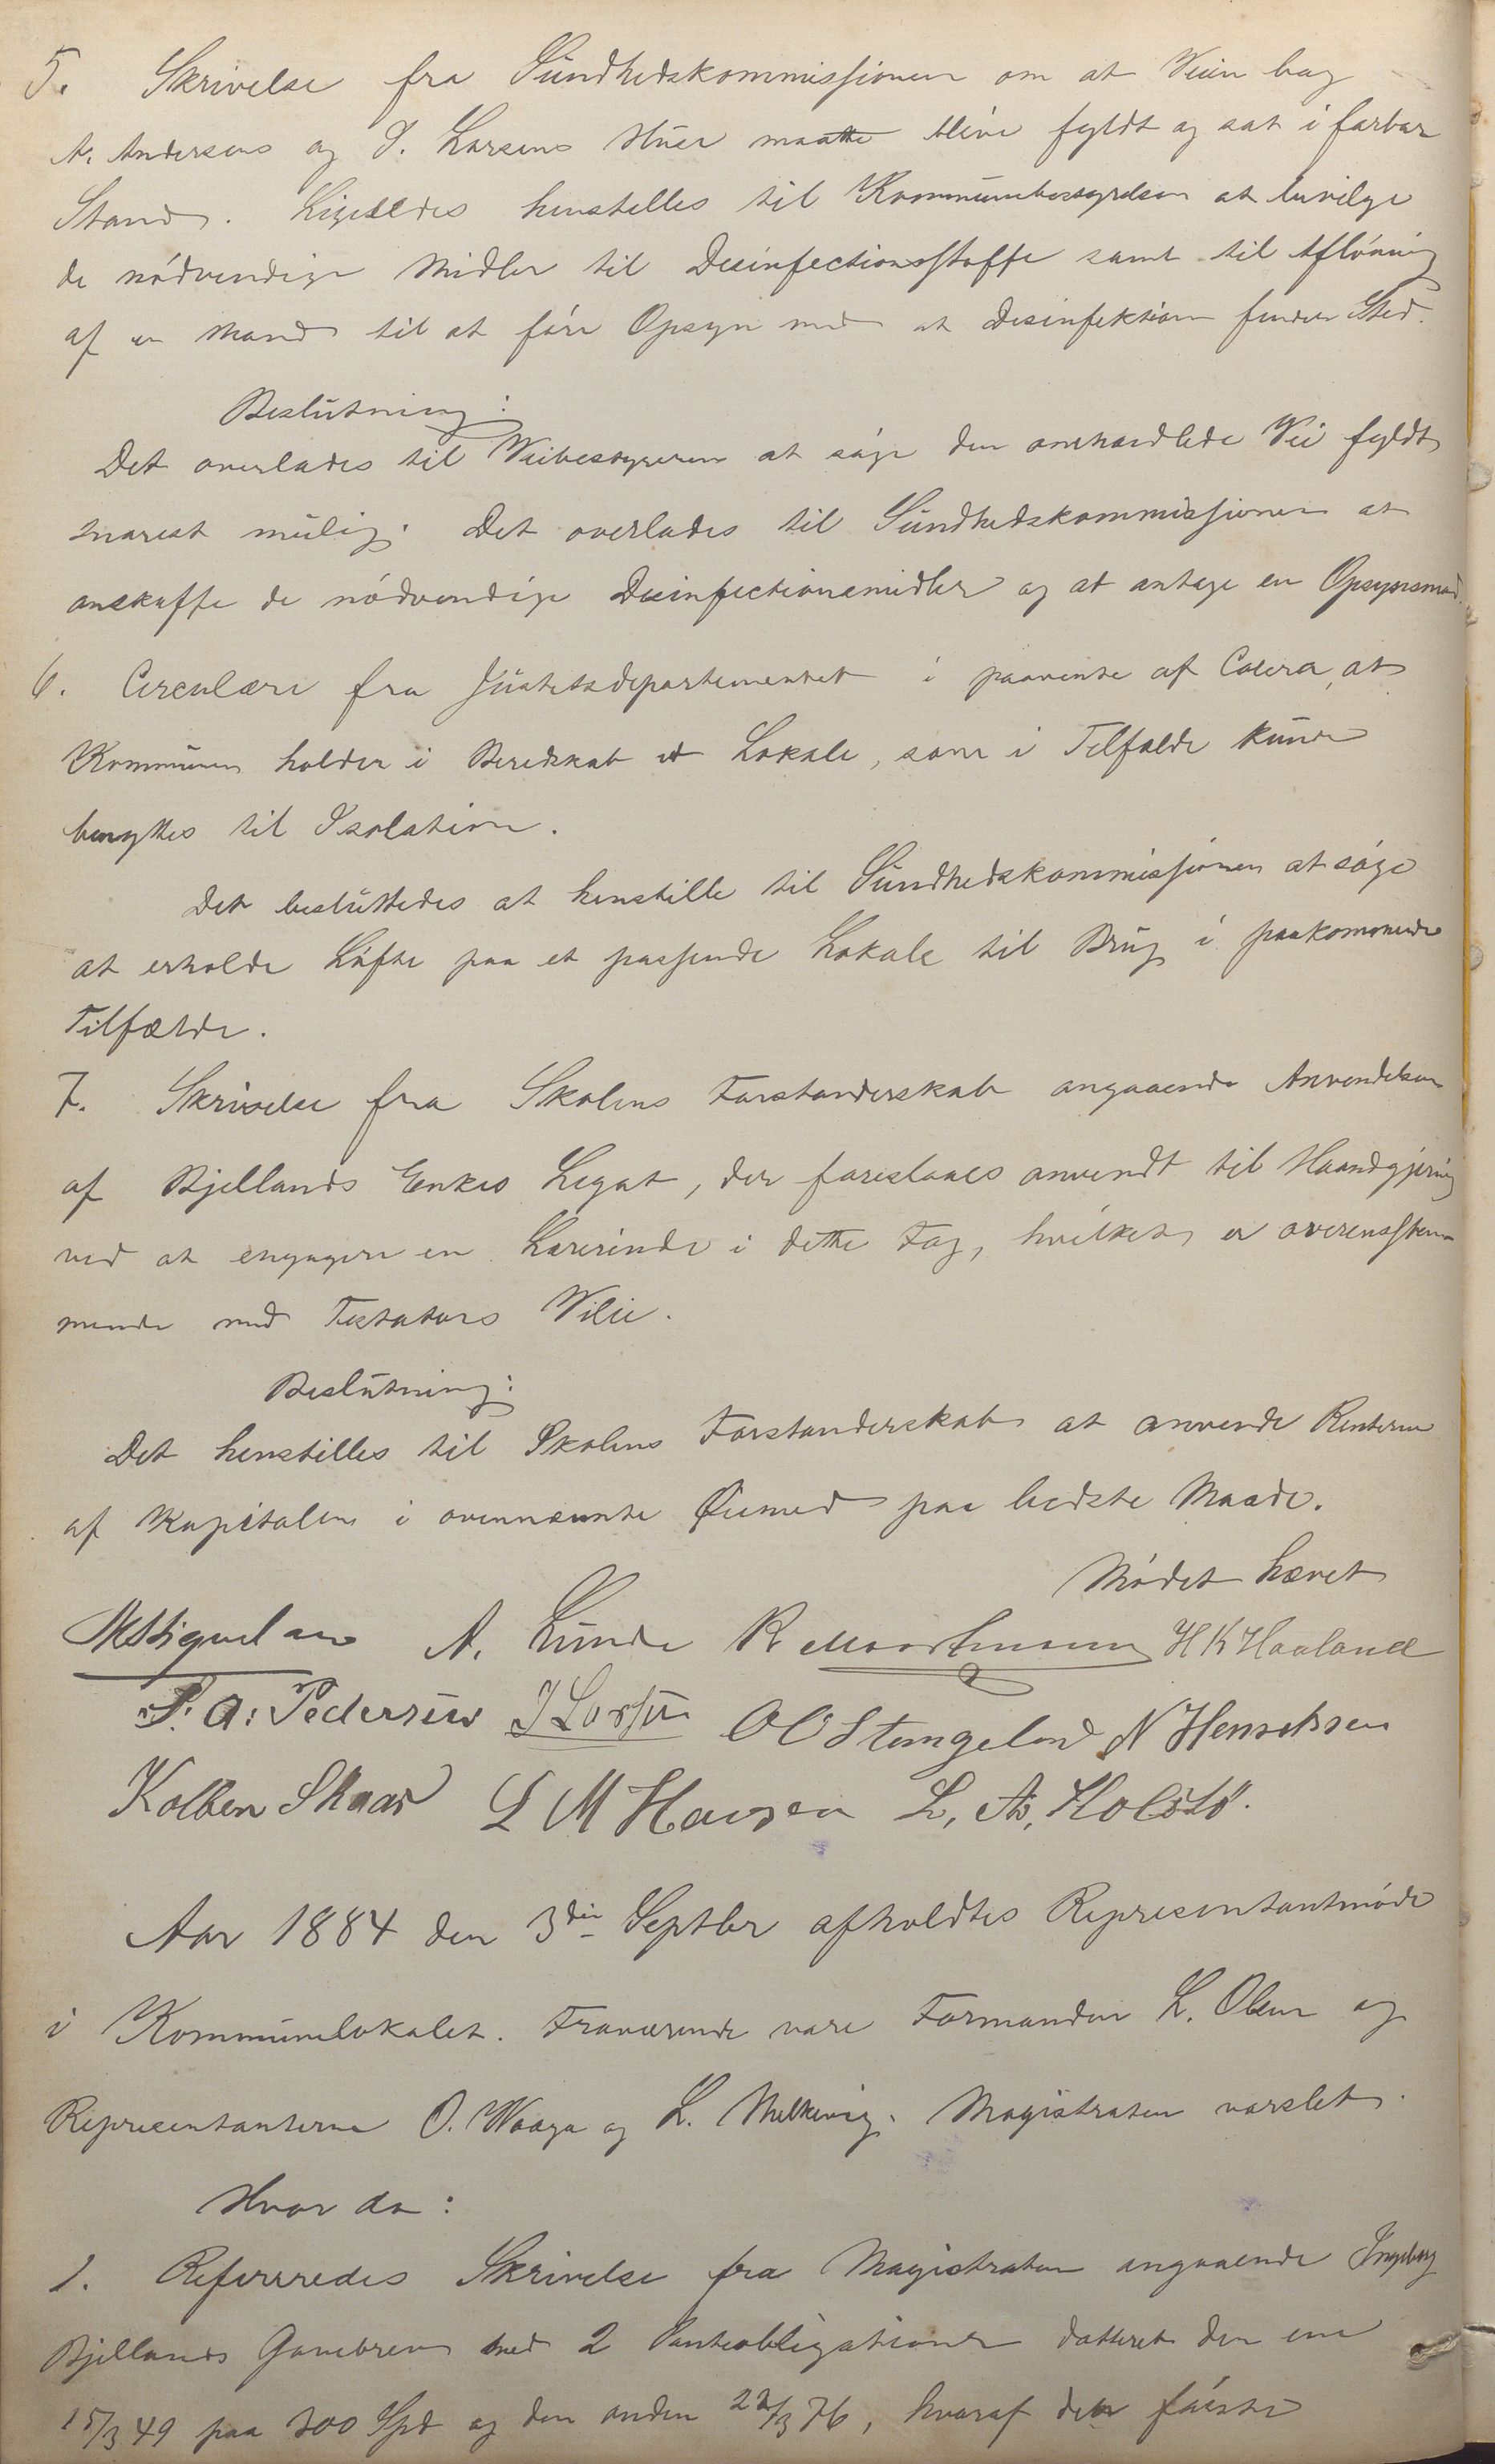 5. Skrivelse fra Sundhedskommissionen om at Veien bag
A. Andersens og I. Larsens Huse maatte blive fyldt og sat i farbar
Stand. Ligeledes henstilles til Kommunebestyrelsen at bevilge
de nödvendige Midler til Desinfectionsstoffe samt til Aflönning
af en Mand til at före Opsyn med at Desinfektion finder Sted.
Beslutning:
Det overlades til Veibestyreren at söge den omhandlede Vei fyldt
snarest mulig. Det overlades til Sundhedskommissionen at
anskaffe de nödvendige Desinfectionsmidler og at antage en Opsynsmand.
6. Circulære fra Justitsdepartementet i paavente af Colera, at
Kommunen holder i Beredskab et Lokale, som i Tilfælde kunde
benyttes til Isolation.
Det besluttedes at henstille til Sundhedskommissionen at söge
at erholde Löfte paa et passende Lokale til Brug i paakommende
Tilfælde.
7. Skrivelse fra Skolens Forstanderskab angaaende Anvendelsen
af Bjellands Enkes Legat, der foreslaaes anvendt til Haandgjerning
ved at engagere en Lærerinde i dette Fag, hvilket er overensstem-
mende med Testators Vilie.
Beslutning:
Det henstilles til Skolens Forstanderskab at anvende Renterne
af Kapitalen i ovennævnte Øiemed paa bedste Maade.
Mödet hævet
A. Lunde R HK Haaland
P. A: Pedersen I Larsen OO Stangeland N Henrichsen
Kolben Skaar L M Hansen L, As, Holstö.
Aar 1884 den 3die Septbr afholdtes Representantmöde
i Kommunelokalet. Fraværende vare Formanden L. Olsen og
Representanterne O. Waage og L. Melkevig. Magistraten varslet.
Hvor da:
1. Refereredes Skrivelse fra Magistraten angaaende Ingeborg
Bjellands Gavebrev med 2 Panteobligationer datteret den ene
15/3 49 paa 300 Spd og den anden 22/3 76, hvoraf den förste